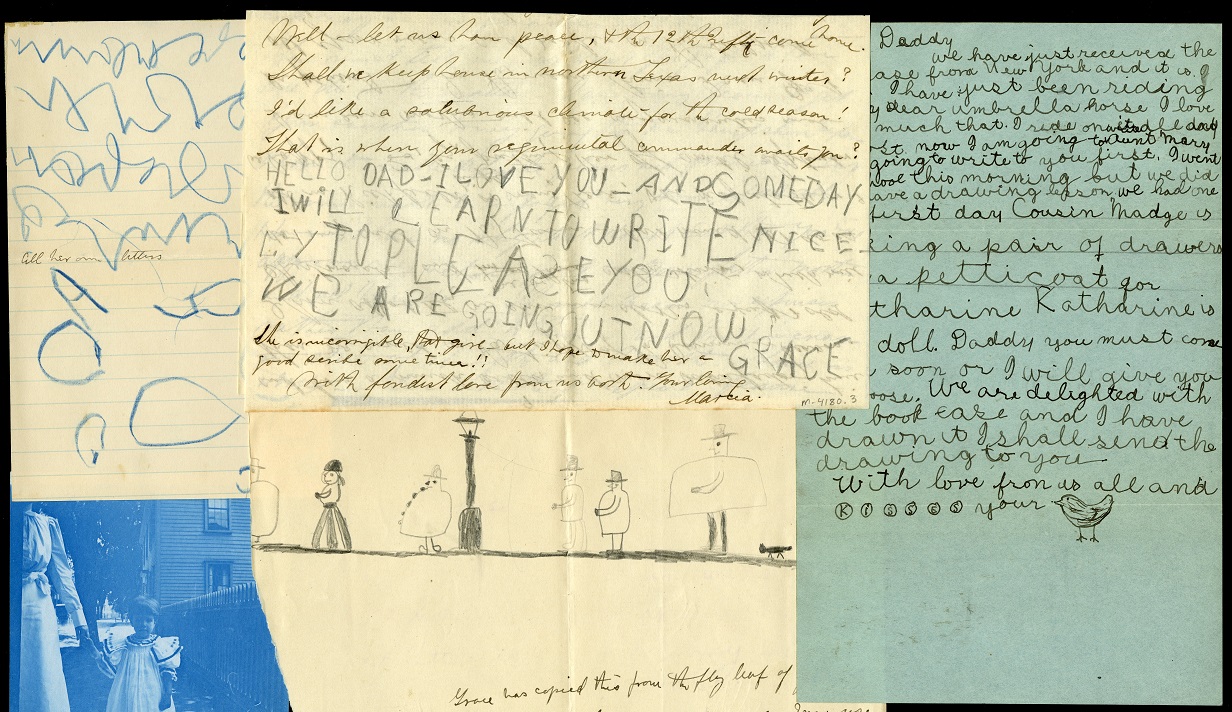 Well – let us have peace, & the 12th Infty come home.
Shall we keep house in northern Texas next winter?
I'd like a salubrious climate for the cold season!
That is when your regimental commander awaits you?
HELLO DAD–I LOVE YOU–AND SOMEDAY
I WILL LEARN TO WRITE NICE
LY TO PLEASE YOU.
WE ARE GOING OUT NOW.
GRACE
She is incorrigible, but I hope to make her a
good scribe some time!!
With fondest love from us both. Your loving
Marcia.
M-4180.3
all her own letters
Grace has copied this from the fly leaf of
Daddy
we have just received the
ase from New York and it is
I have just been riding
y dear umbrella horse I love
much that. I ride on it all day
st. now I am going to Aunt Mary
going to write to you first. I went
hool this morning but we did
ave a drawing lesson, we had one
first day Cousin Madge is
king a pair of drawers
a petticoat for
tharine Katharine is
doll. Daddy you must come
soon or I will give you
oose. We are delighted with
the book case and I have
drawn it I shall send the
drawing to you
With love from us all and
KISSES your